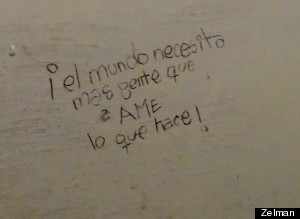 ¡el mundo necesita
más gente que
AME
lo que hace!
Zelman